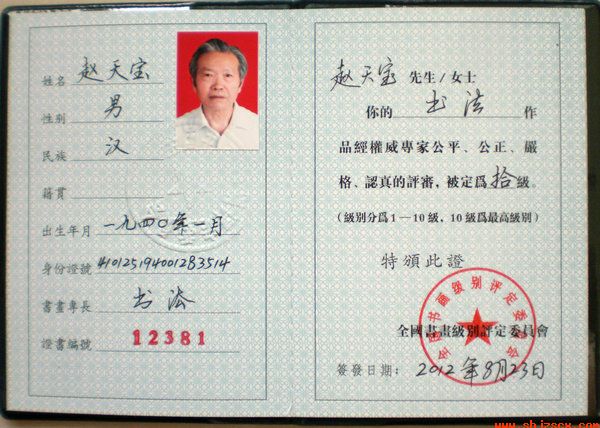 姓名 赵天宝
性別 男
民族 汉
籍貫
出生年月 一九四〇年一月
身份證號 410125194001283514
書畫專長 书法
證書編號 12381
赵天宝 先生/女士
你的 书法 作
品經權威專家公平、公正、嚴
格、認真的評審，被定爲 拾 級。
(級别分爲1—10級，10級爲最高級别)
特頒此證
全国书画级别评定委员会
全國書畫級别評定委員會
簽發日期： 2012年8月23日
www.shjzscx.com